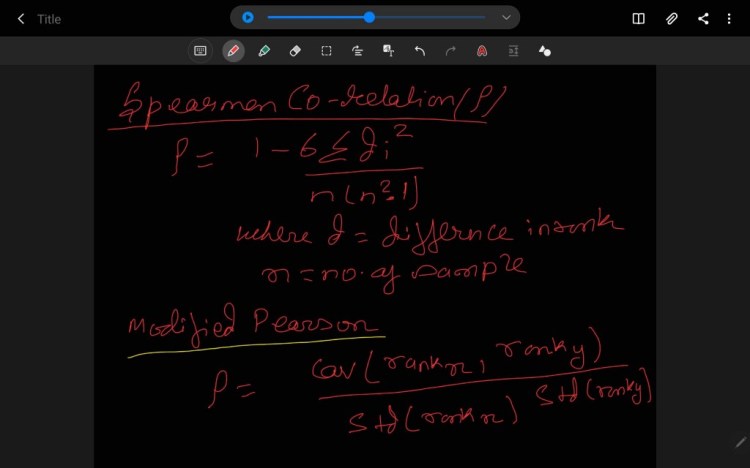 Title
Spearmen Co-Relation(ρ)
ρ = 1 - 6 Σ di² / n(n²-1)
where d = differnce in rank
n = no. of sample
Modified Pearson
ρ = Cov(rank x, rank y) / Std(rank x) Std(rank y)